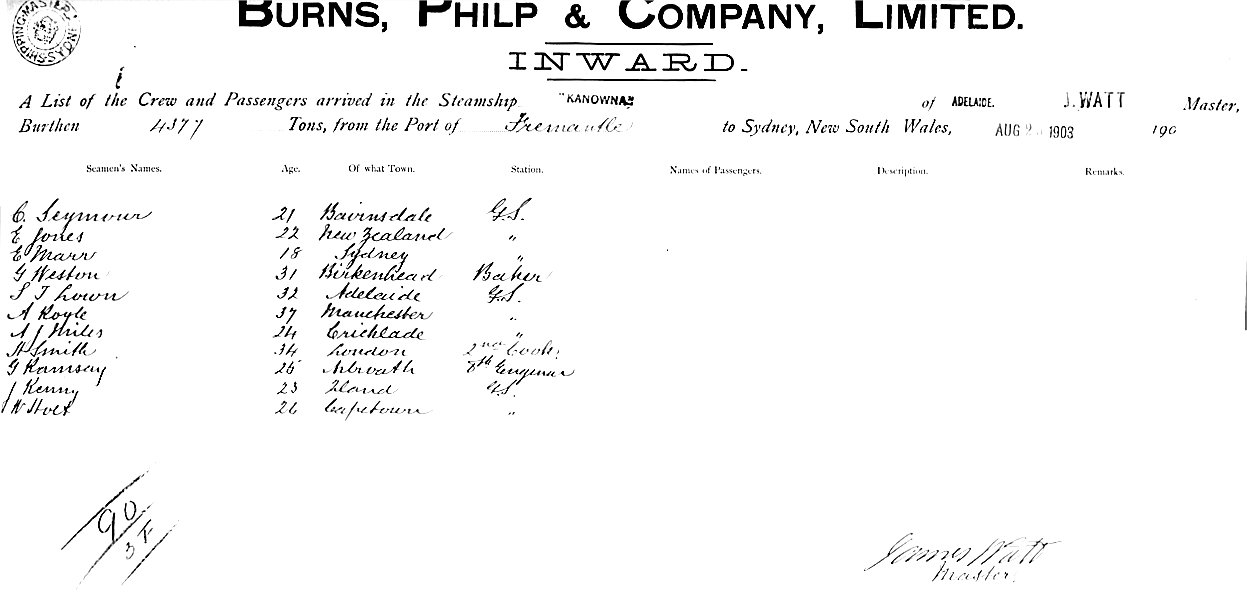 SHIPPING MASTER SYDNEY
BURNS, PHILP & COMPANY, LIMITED.
INWARD.
A List of the Crew and Passengers arrived in the Steamship "KANOWNA" of ADELAIDE. J. WATT Master,
Burthen 4377 Tons, from the Port of Fremantle to Sydney, New South Wales, AUG 1903 190
Seamen's Names. Age. Of what Town. Station. Names of Passengers. Description. Remarks.
C. Seymour 21 Bairnsdale G.S.
E Jones 22 New Zealand "
E Marr 18 Sydney "
G Weston 31 Birkenhead Baker
S T Lown 32 Adelaide G.S.
A Royle 37 Manchester "
A J Miles 24 Cricklade "
H Smith 34 London 2nd Cook
G Ramsay 25 8th Engineer
J Kenny 23 G.S.
W Holt 26 Capetown "
90
James Watt
Master.